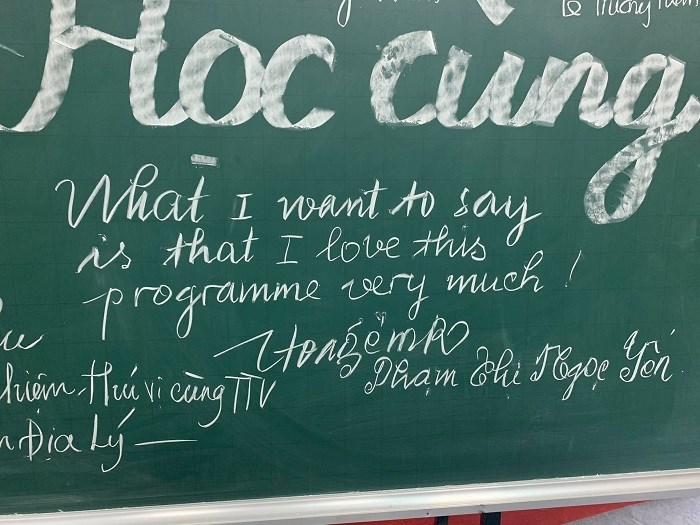 Học cùng
What I want to say
is that I love this
programme very much!
Phạm Thị Ngọc Yến
thú vị cùng TTV
Địa Lý —